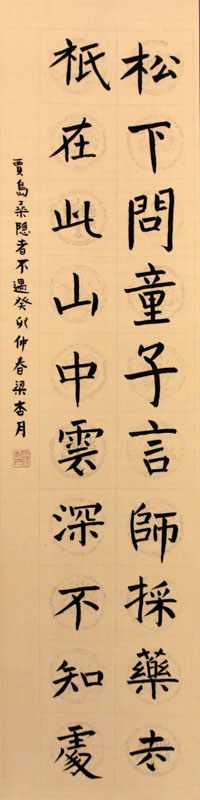 松下問童子言師採藥去
祇在此山中雲深不知處
賈島桑隱者不遇癸卯仲春梁杏月